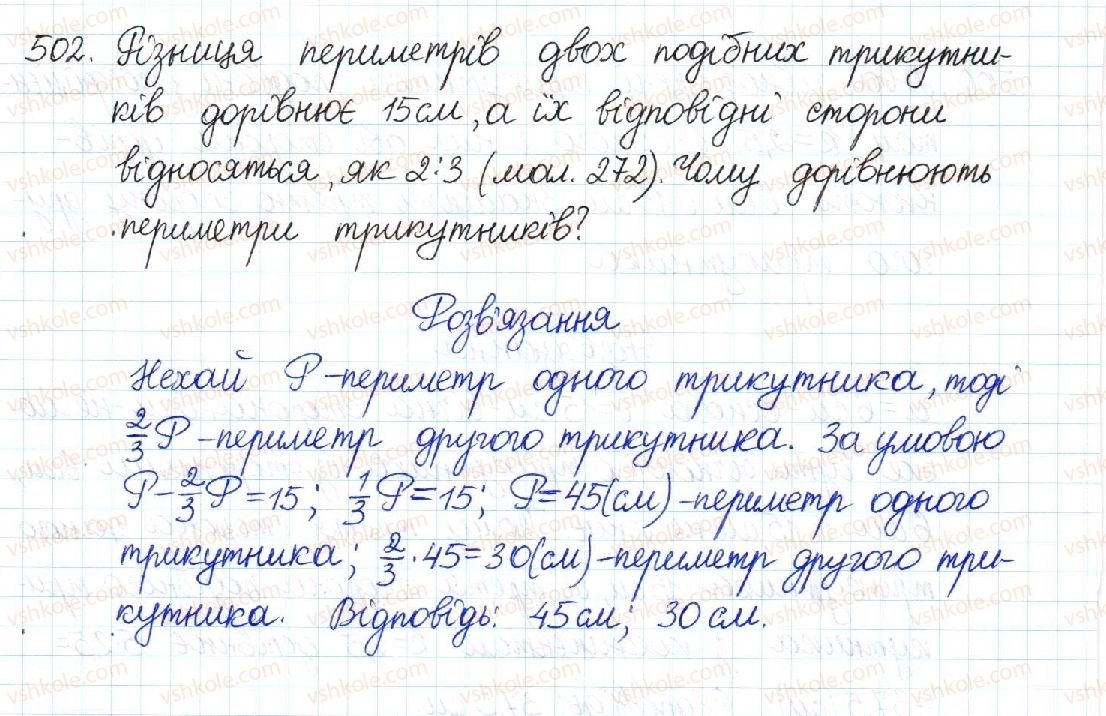 502. Різниця периметрів двох подібних трикутни-
ків дорівнює 15см, а їх відповідні сторони
відносяться, як 2:3 (мал. 272). Чому дорівнюють
периметри трикутників?
Розв'язання
Нехай P-периметр одного трикутника, тоді
2/3 P-периметр другого трикутника. За умовою
P-2/3 P=15; 1/3 P=15; P=45(см)-периметр одного
трикутника; 2/3·45=30(см)-периметр другого три-
кутника. Відповідь: 45см; 30см.
vshkole.com